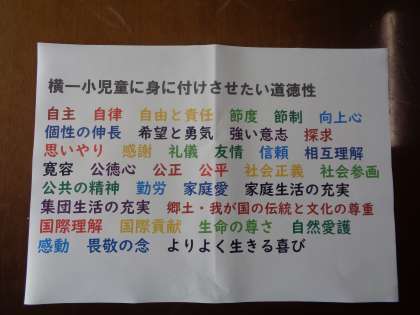 横一小児童に身に付けさせたい道徳性
自主　自律　自由と責任　節度　節制　向上心
個性の伸長　希望と勇気　強い意志　探求
思いやり　感謝　礼儀　友情　信頼　相互理解
寛容　公徳心　公正　公平　社会正義　社会参画
公共の精神　勤労　家庭愛　家庭生活の充実
集団生活の充実　郷土・我が国の伝統と文化の尊重
国際理解　国際貢献　生命の尊さ　自然愛護
感動　畏敬の念　よりよく生きる喜び